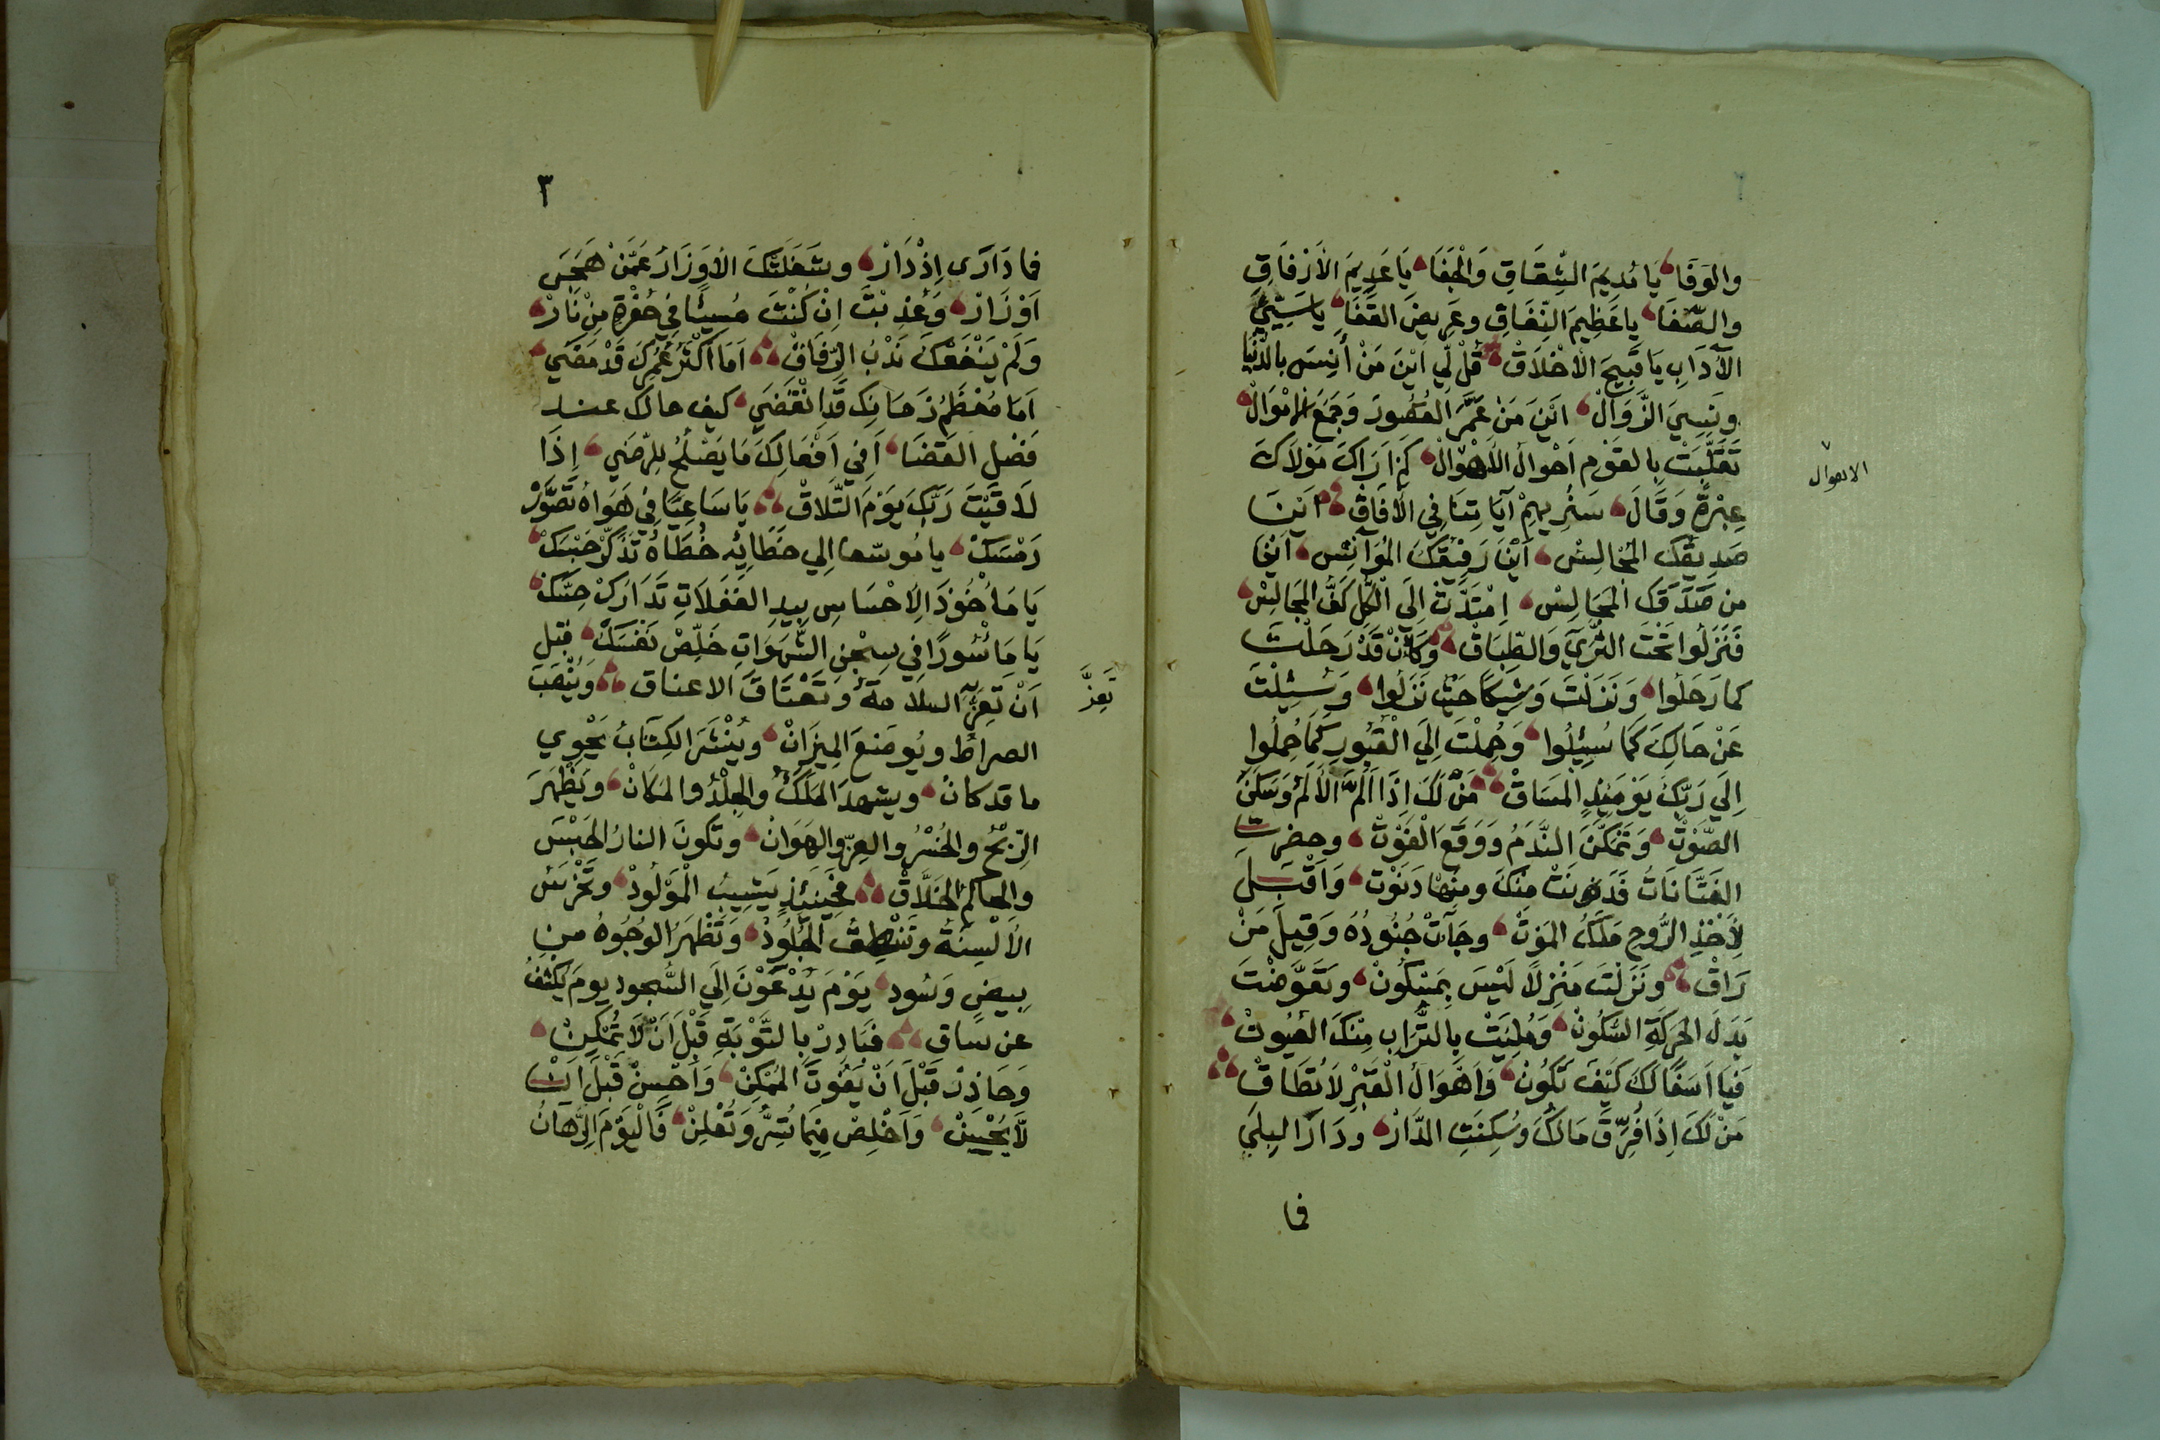 والوَفَا يَا مُديمَ الشِّقَاقِ وَالْجَفَا يَا عَدِيمَ الأَرْفَاقِ
والصَّفَا يا عَظِيمَ النِّفَاقِ وعَرِيضَ القَفَا يا سَيِّئَ
الآدَابِ يَا قَبِيحَ الْأَخْلَاقْ قُلْ لِي اَيْنَ مَنْ أَنِسَ بالدُّنْيَا
وَنَسِيَ الزَّوَالْ اَيْنَ مَنْ عَمَّرَ القُصُورَ وَجَمَعَ الامْوَالْ
تَقَلَّبَتْ بِالقَوْمِ اَحْوالُ الأَهْوَالْ كَمْ اَرَاكَ مَوْلَاكَ
الاهوال
عِبْرَةً وَقَالَ سَنُرِيهِمْ آيَاتِنَا فِي الأفَاقِ اَيْنَ
صَدِيقُكَ المُخالِسْ اَيْنَ رَفِيْقُكَ المُوَآنِسْ اَيْنَ
من صَدَقَكَ المُجَالِسْ اِمْتَدَّتْ اِلَى الْكُلِّ كَفُّ المُخَالِسْ
فَنَزَلُوا تَحْتَ الثَّرَي وَالطِّبَاقْ وَكَأَنْ قَدْ رَحَلْتَ
كما رَحَلُوا وَنَزَلْتَ وَشِيكًا حَيْثُ نَزَلُوا وَسُئِلْتَ
عَنْ حَالِكَ كَمَا سُئِلُوا وَحُمِلْتَ اِلَي الْقُبُورِ كَمَا حُمِلُوا
اِلَي رَبِّكَ يَوْمَئِذٍ المَسَاقْ مَنْ لَكَ اِذَا اَلَمَّ الأَلَمُ وَسَكَنَ
الصَّوْتْ وَتَمَكَّنَ النَّدَمُ وَوَقَعَ الْفَوْتْ وحضرت
الفَتَّانَاتُ قَدَنَتْ مِنْكَ ومِنْهَا دَنَوْت وَاَقْبَلَ
لِأَخْذِ الرُّوحِ مَلَكُ المَوْتْ وجَآتْ جُنُودُهُ وَقِيلَ مَنْ
رَاقْ وَنَزَلْتَ مَنْزِلًا لَيْسَ بِمَسْكُونْ وَتَعَوَّضْتَ
بَدَلَ الحَرَكَةِ السُّكُونْ وَمُلِئَتْ بِالتُّرَابِ مِنْكَ العُيُونْ
فَيَا اَسَفًا لَكَ كَيْفَ تَكُونْ وَاَهْوَالُ الْقَبْرِ لَا تُطَاقْ
مَنْ لَكَ اِذَا فُرِّقَ مَالُكَ وَسُكِنَتِ الدَّارْ ودَارَ البِلَي
فما
٣
فما دَارَى اِذْ دَارْ وشَغَلَتْكَ الأَوْزَارُ عَمَّنْ هَجَسَ
اَوْ زَارْ وَعُذِبْتَ اِنْ كُنْتَ مُسِيئًا فِي حُفْرَةٍ مِنْ نَارْ
وَلَمْ يَنْفَعْكَ نَدْبُ الرِّفَاقْ اَمَا اَكْثَرُ عُمُرِكَ قَدْ مَضَي
اَمَا مُعْظَمُ زَمَانِكَ قَدِ انْقَضَي كيف حالك عند
فَصْلِ القَضَا اَفِي اَفْعَالِكَ مَا يَصْلُحُ لِلرِّضَي اِذَا
لَاقَيْتَ رَبَّكَ يَوْمَ التَّلَاقْ يَا سَاعِيًا فِي هَوَاهُ تَصَوَّرْ
رَمْسَكْ يا مُوسِّعا اِلي خَطَائِه خُطَاهُ تَذَكَّرْ حَبْسَكْ
يَا مَأْخُوذَ الِاحْسَاسِ بِيَدِ الغَفَلَاتِ تَدَارَكْ حِسَّكْ
يَا مَأْسُورًا فِي سِجْنِ الشَّهَوَاتِ خَلِّصْ نَفْسَكْ قبل
اَنْ تَعِزَّ السلامةُ وتَعْتَاقَ الاعناق وَيُنْصَبَ
تَعِزَّ
الصراطُ ويُوضَعَ المِيزَانْ ويُنْشَرَ الكِتَابُ يَحْوِي
ما قد كان ويشهدَ المَلَكُ والجِلْدُ والمَكَانْ وَيَظْهَرَ
الرِّبْحُ والخُسْرُ والعِزّ والهَوَانْ وتَكُونَ النارُ الحَبْسَ
والحاكمُ الخَلَّاقْ فَحِينَئِذٍ يَشِيبُ الْمَوْلُودْ وتَخْرَسُ
الأَلْسِنَةُ وتَنْطِقُ الجُلُودْ وَتَظْهَرُ الوُجُوهُ مِن
بِيضٍ وَسُودٍ يَوْمَ يُدْعَوْنَ اِلَي السُّجود يومَ يُكْشَفُ
عن ساق فَبَادِرْ بِالتَّوْبَةِ قَبْلَ اَنْ لَا تُمْكِنْ
وَحَاذِرْ قَبْلَ اَنْ يَفُوتَ المُمْكِنْ وَاَحْسِنْ قَبْلَ اَنْ
لَا يُحْسِنْ وَاَخْلِصْ فِيمَا تُسِرُّ وَتُعْلِنْ فَالْيَوْمَ الرِّهَانُ